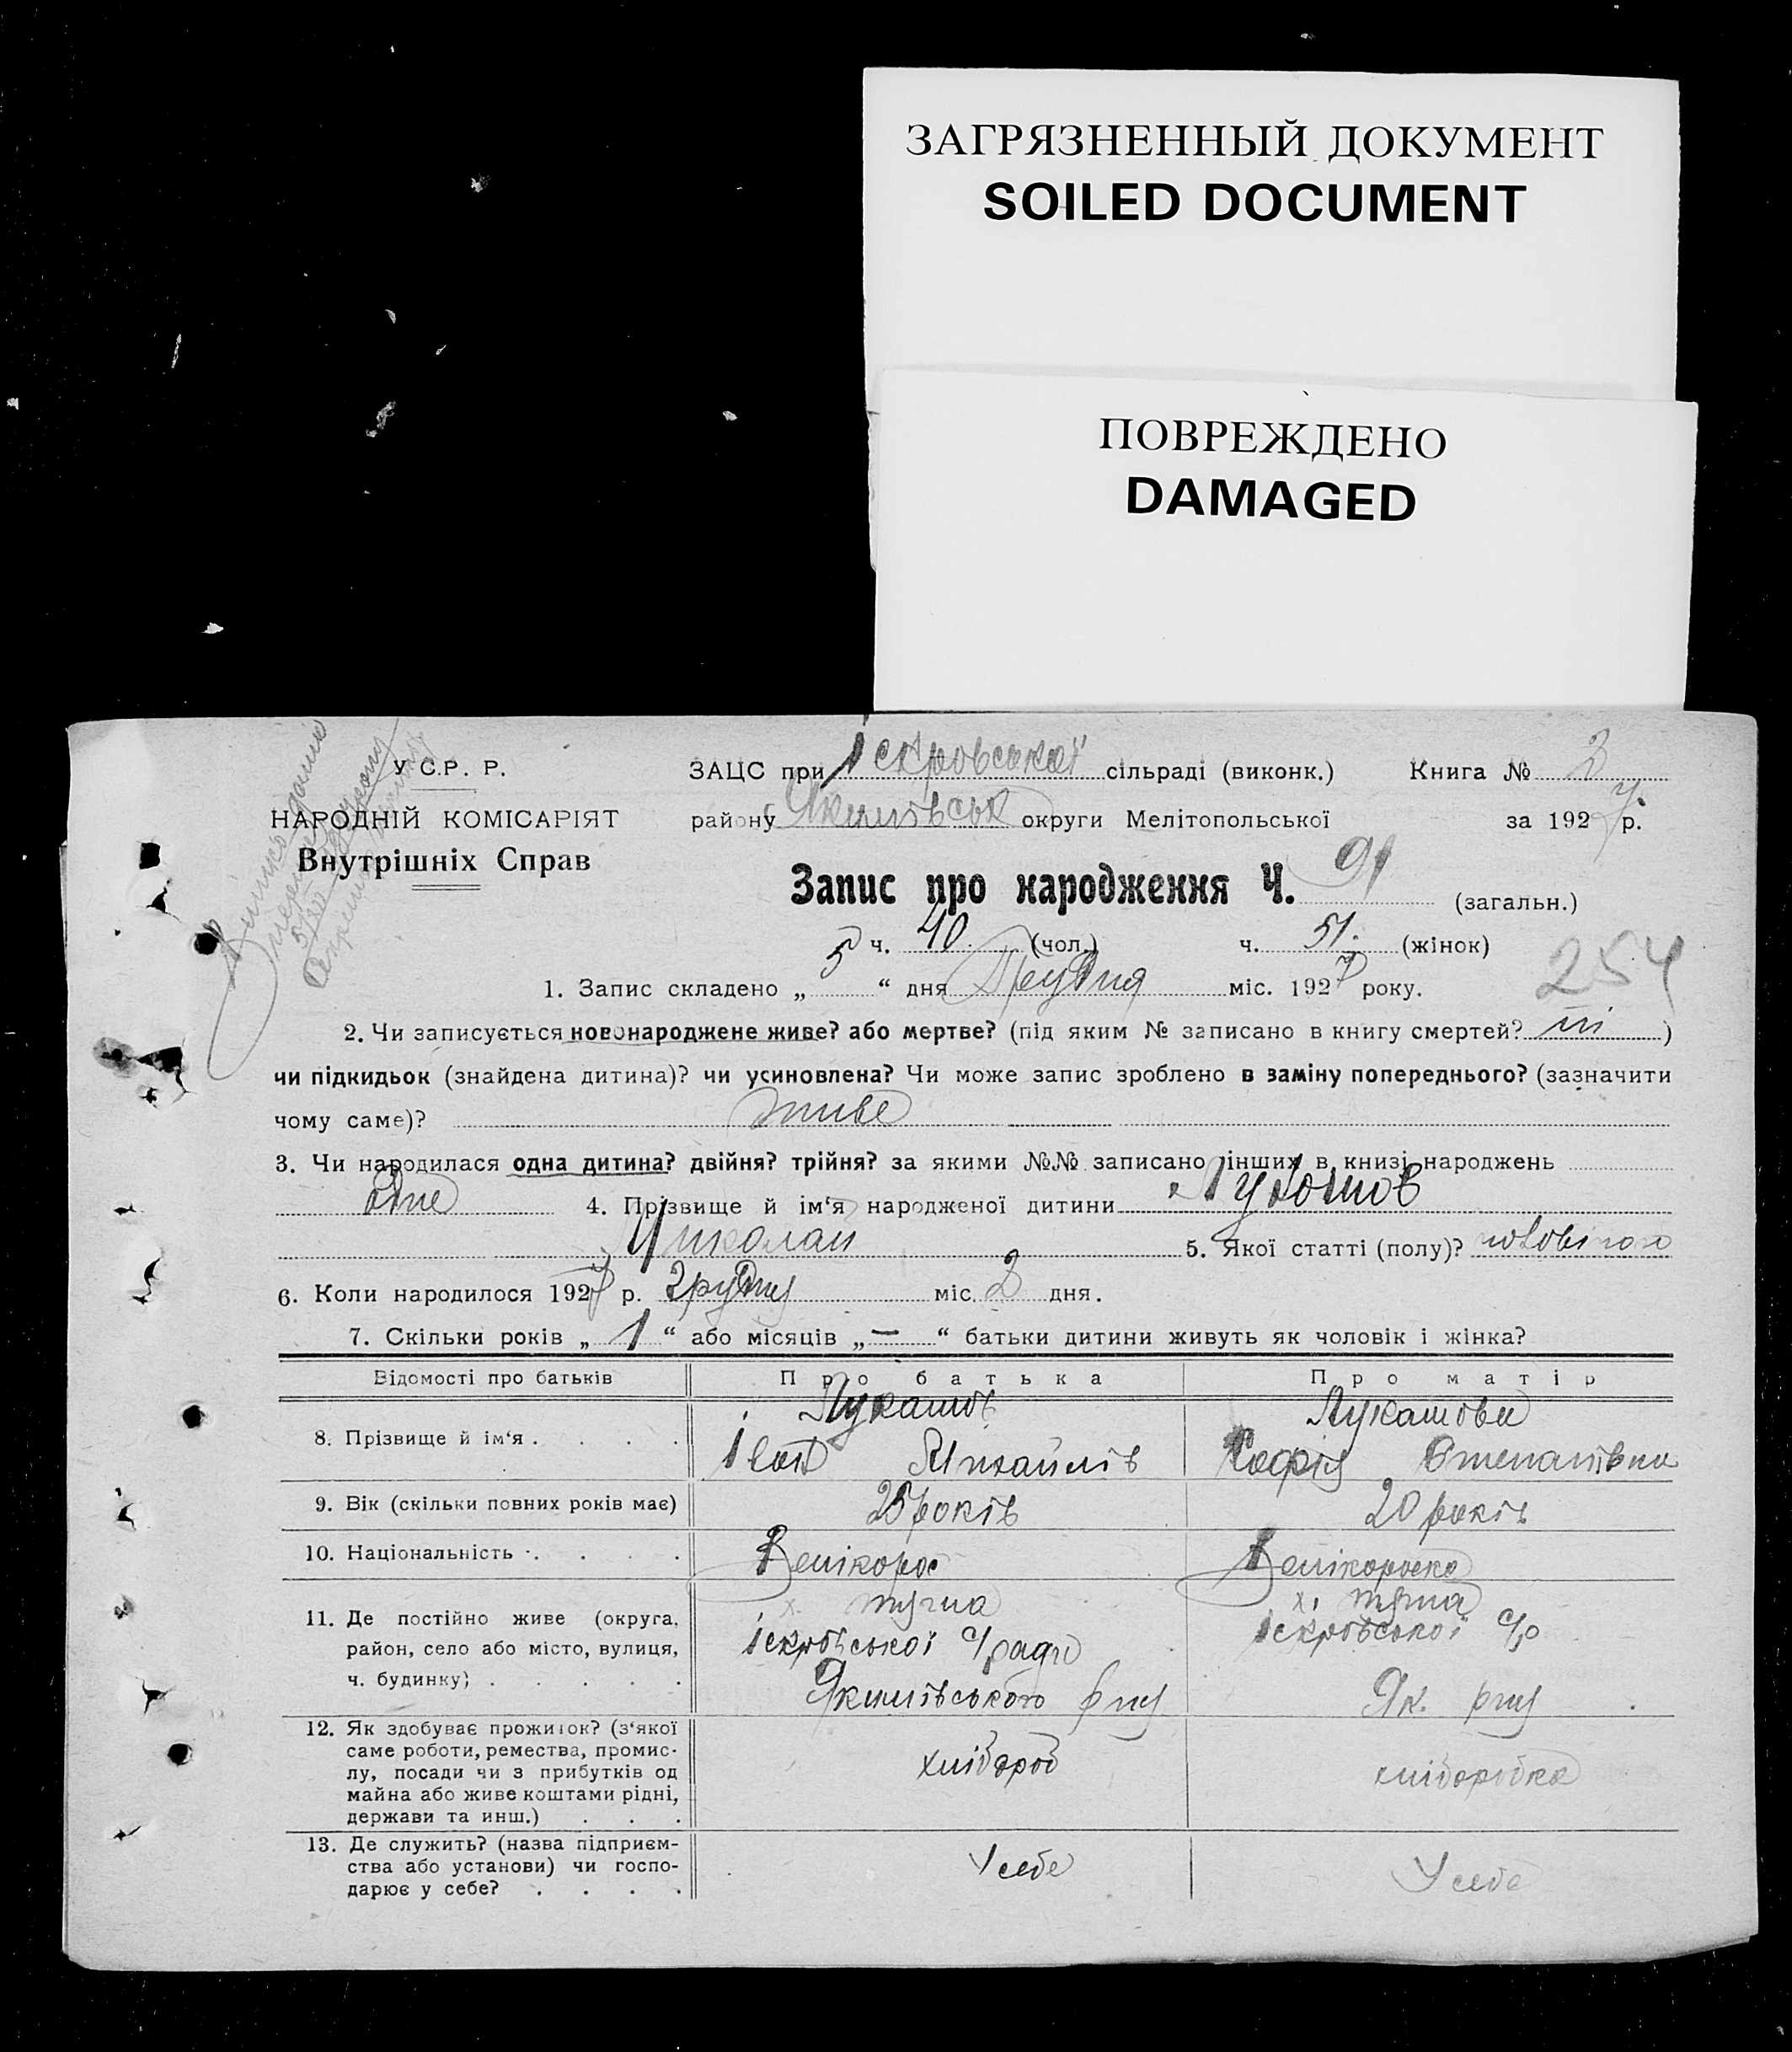 ЗАГРЯЗНЕННЫЙ ДОКУМЕНТ
SOILED DOCUMENT
ПОВРЕЖДЕНО
DAMAGED
У С.Р. Р.
НАРОДНІЙ КОМІСАРІЯТ
Внутрішніх Справ
ЗАЦС при Іскровської сільраді (виконк.) Книга № 2
району Якимівськ округи Мелітопольської за 1927 р.
Запис про народження Ч. 91 (загальн.)
ч. 40 (чол.) ч. 51. (жінок)
254
1. Запис складено „ 5 “ дня Грудня міс. 1927 року.
2. Чи записується новонароджене живе? або мертве? (під яким № записано в книгу смертей? ні )
чи підкидьок (знайдена дитина)? чи усиновлена? Чи може запис зроблено в заміну попереднього? (зазначити
чому саме)? живе
3. Чи народилася одна дитина? двійня? трійня? за якими №№ записано інших в книзі народжень
одне 4. Прізвище й ім‘я народженої дитини Лукашов
Николай 5. Якої статті (полу)? чоловічого
6. Коли народилося 1927 р. грудня міс. 2 дня.
7. Скільки років „ 1 “ або місяців „ — “ батьки дитини живуть як чоловік і жінка?
Відомості про батьків Про батька Про матір
8. Прізвище й ім‘я . . . . Лукашов Лукашова
Іван Михайлів Софія Степанівна
9. Вік (скільки повних років має) 25 років 20 років
10. Національність . . . . Велікорос Велікороска
11. Де постійно живе (округа,
район, село або місто, вулиця,
ч. будинку) . . . . .
х.
Іскровської с/ради
Якимівського р-ну
х.
Іскровської с/р
Як. р-ну
12. Як здобуває прожиток? (з‘якої
саме роботи, ремества, промис-
лу, посади чи з прибутків од
майна або живе коштами рідні,
держави та инш.) . . .
хлібороб хліборобка
13. Де служить? (назва підприєм-
ства або установи) чи госпо-
дарює у себе? . . . .
У себе У себе